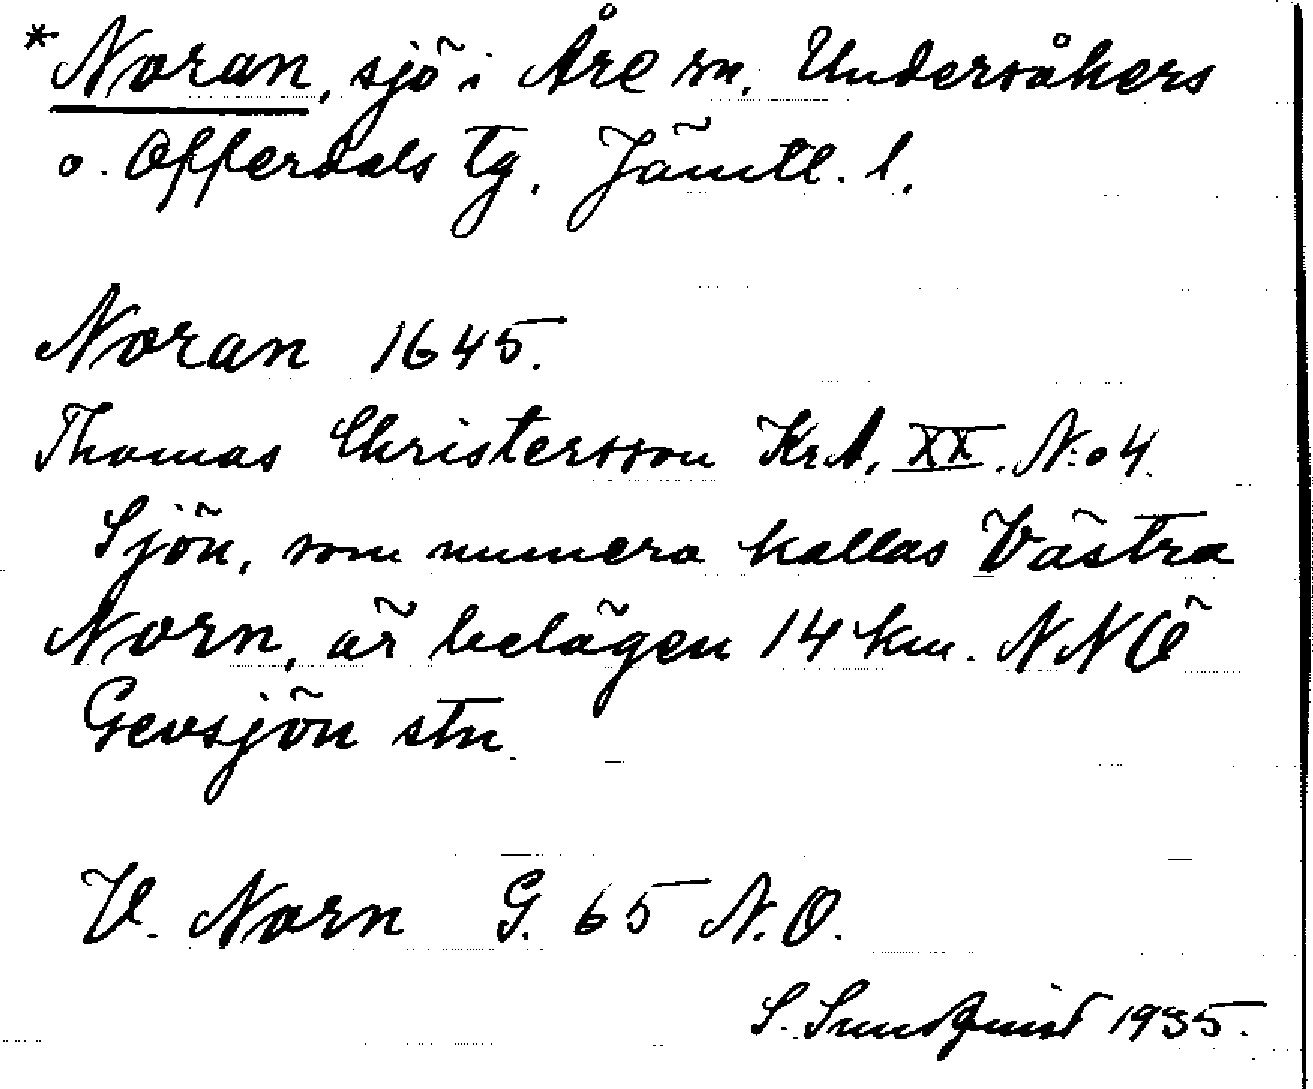 *Noran, sjö i Åre sn, Undersåkers
o. Offerdals tg. Jämtl. l.
Noran 1645.
Thomas Christersson Kr.A. XX. N:o 4.
Sjön, som numera kallas Västra
Norn, är belägen 14 km. NNÖ
Gevsjön stn.
V. Norn G. 65 N.O.
S. Sundquist 1935.